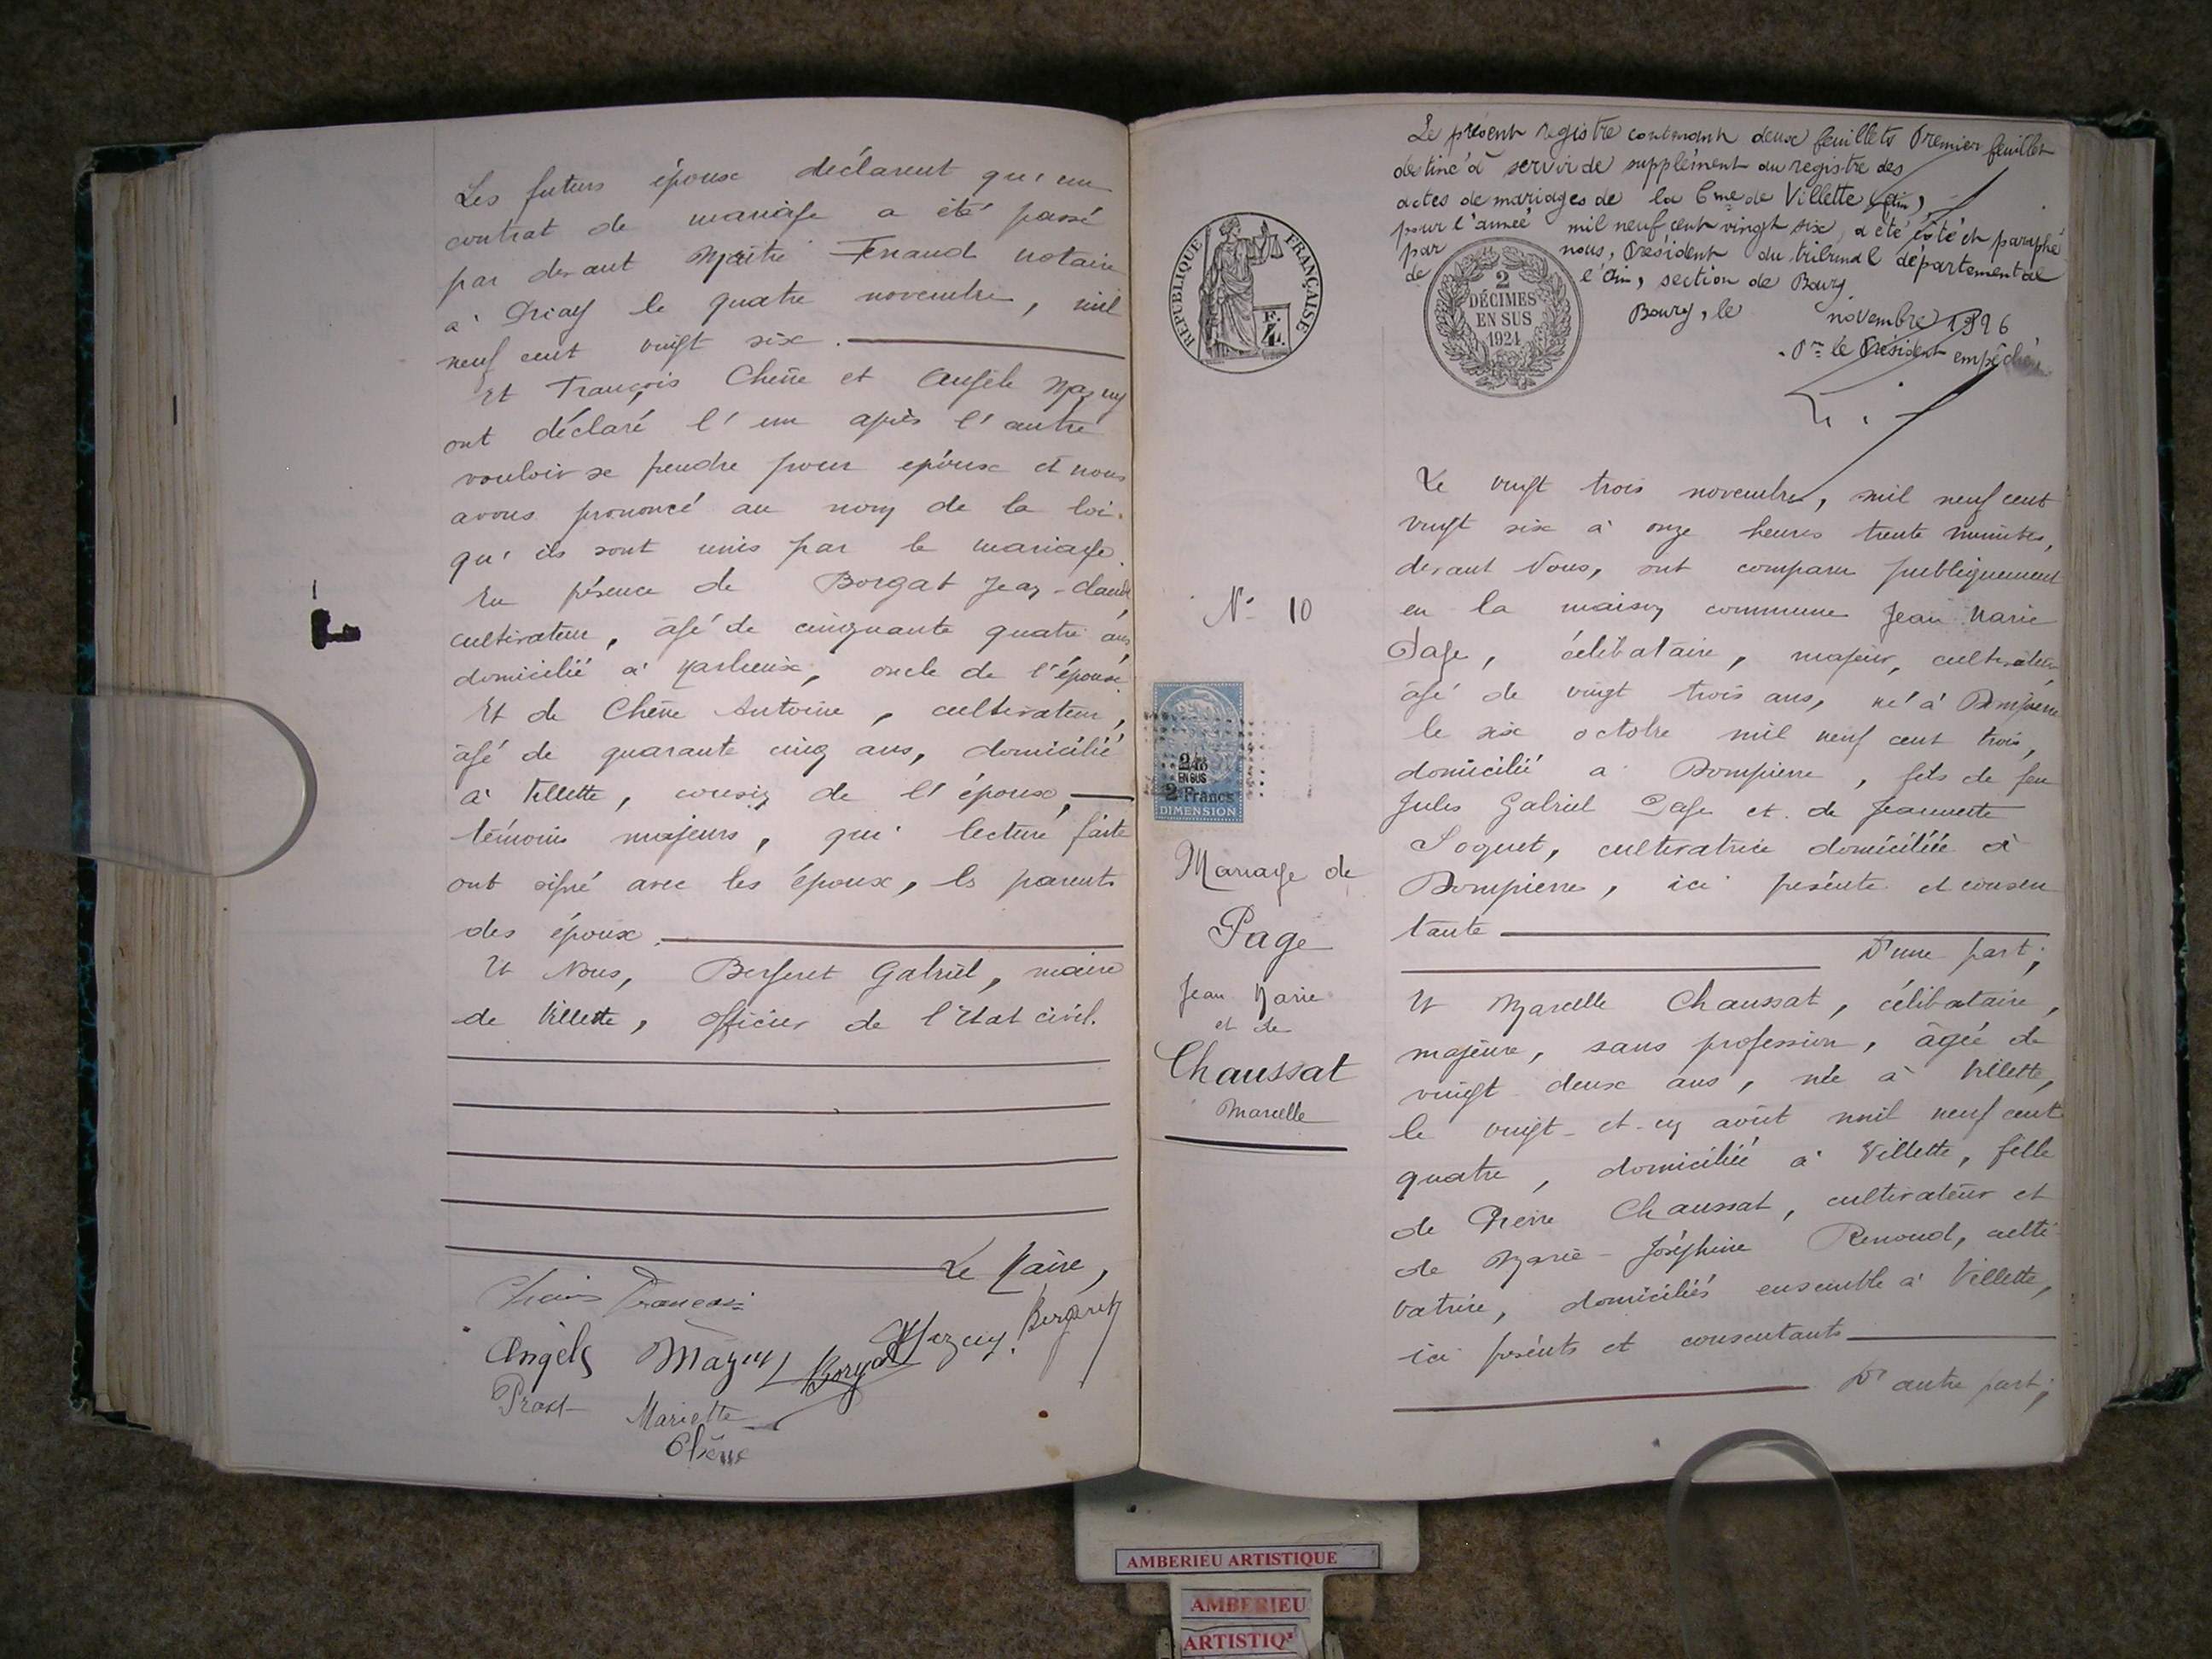 Les futurs époux déclarent qu'un
contrat de mariage a été passé
par devant Maître notaire
à Priay le quatre novembre, mil
neuf cent vingt six.
Et François Chêne et Angèle Mazuy
ont déclaré l'un après l'autre
vouloir se prendre pour époux et nous
avons prononcé au nom de la loi
qu'ils sont unis par le mariage.
En présence de Borgat Jean-Claude,
cultivateur, âgé de cinquante quatre ans,
domicilié à Marlieux, oncle de l'épouse.
Et de Chêne Antoine, cultivateur,
âgé de quarante cinq ans, domicilié
à Villette, cousin de l'époux,
témoins majeurs, qui lecture faite
ont signé avec les époux, ls parents
des époux.
Et Nous, Bergeret Gabriel, maire
de Villette, officier de l'Etat civil.
Le Maire,
François
Angèle Mazuy Borgat Mazuy. Bergeret
Prost Mariette
Chêne
Le présent registre contenant deux feuillets Premier feuillet
destiné à servir de supplément au registre des
actes de mariages de la Cne de Villette (Ain),
pour l'année mil neuf cent vingt six, a été coté et paraphé
par nous, Président du tribunal départemental
de l'Ain, section de Bourg
Bourg, le novembre 1926
Pr le Président empêché
RÉPUBLIQUE FRANÇAISE
2
DÉCIMES
EN SUS
1924
N° 10
EN SUS
2 Francs
DIMENSION
Mariage de
Page
Jean Marie
et de
Chaussat
Marcelle
Le vingt trois novembre, mil neuf cent
vingt six à onze heures trente minutes,
devant Nous, ont comparu publiquement
en la maison commune Jean Marie
Page, célibataire, majeur, cultivateur,
âgé de vingt trois ans, né à Dompierre
le six octobre mil neuf cent trois,
domicilié à Dompierre, fils de feu
Jules Gabriel Page et de Jeannette
Soquet, cultivatrice domiciliée à
Dompierre, ici présente et consen
tante
D'une part;
Et Marcelle Chaussat, célibataire,
majeure, sans profession, âgée de
vingt deux ans, née à Villette,
le vingt-et-un août mil neuf cent
quatre, domiciliée à Villette, fille
de Pierre Chaussat, cultivateur et
de Marie-Joséphine Renoud, culti
vatrice, domiciliés ensemble à Villette,
ici présents et consentants
D'autre part;
AMBERIEU ARTISTIQUE
AMBERIEU
ARTISTIQ